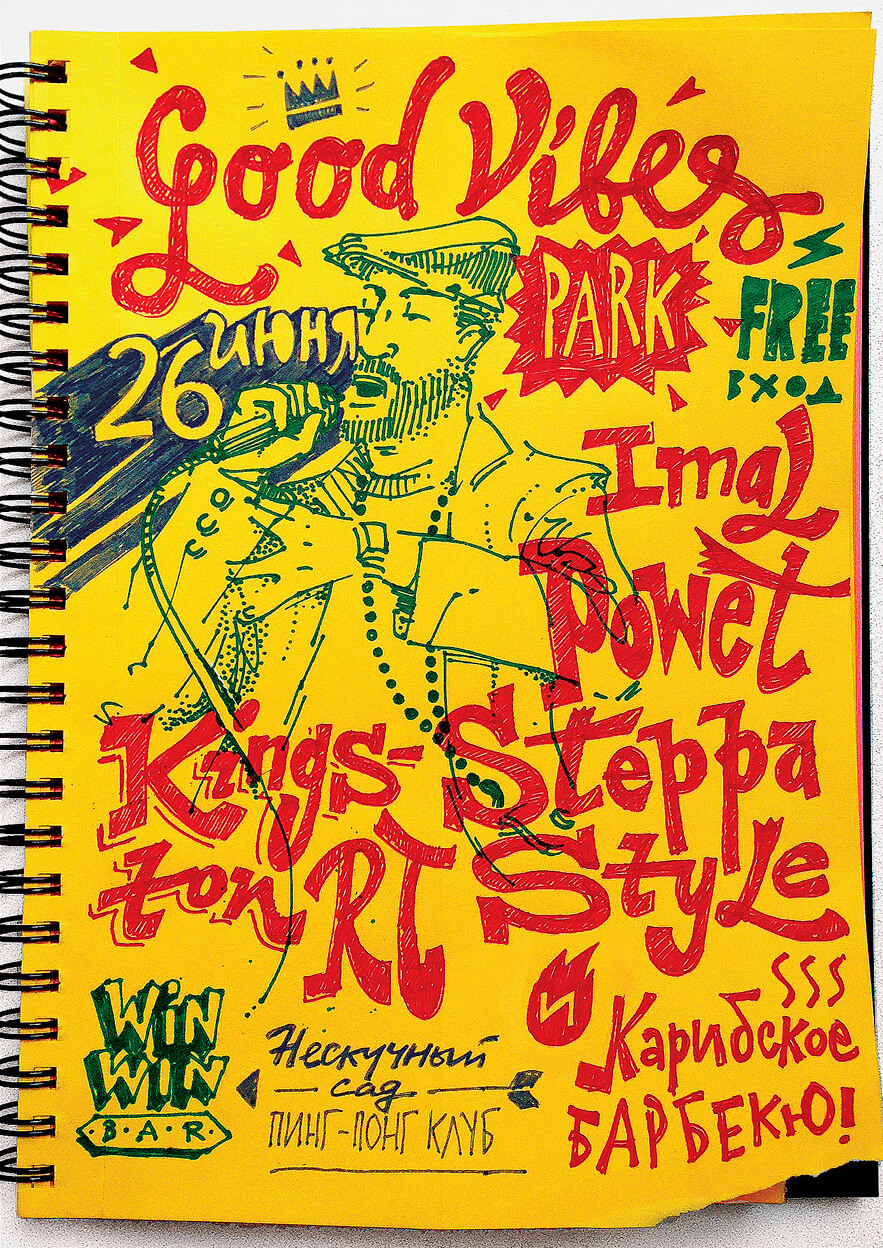 Good Vibes
PARK
26 июня
FREE
ВХОД
Imal
Powet
Kings-
ton RT
Steppa
Style
WiN
WiN
B·A·R
Нескучный
сад
ПИНГ-ПОНГ КЛУБ
Карибское
БАРБЕКЮ!